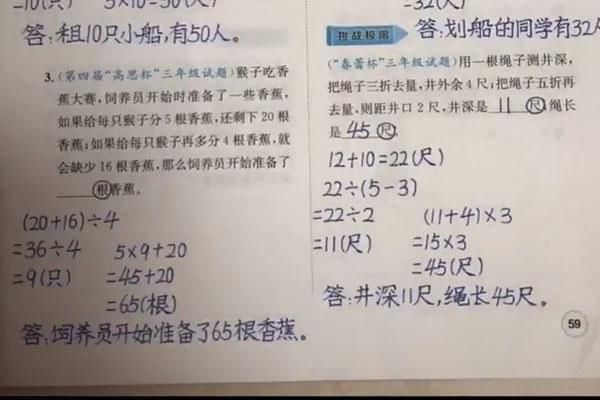 =10(只) 5×10=50(人)
答:租10只小船,有50人。
3.(第四届“高思杯”三年级试题)猴子吃香
蕉大赛,饲养员开始时准备了一些香蕉,
如果给每只猴子分5根香蕉,还剩下20根
香蕉;如果给每只猴子再多分4根香蕉,就
会缺少16根香蕉,那么饲养员开始准备了
____根香蕉。
(20+16)÷4
=36÷4 5×9+20
=9(只) =45+20
=65(根)
答:饲养员开始准备了65根香蕉。
=32(人)
答:划船的同学有32人
挑战极限
(“春蕾杯”三年级试题)用一根绳子测井深,
把绳子三折去量,井外余4尺;把绳子五折再
去量,则距井口2尺,井深是 11 尺,绳长
是 45 尺。
12+10=22(尺)
22÷(5-3)
=22÷2 (11+4)×3
=11(尺) =15×3
=45(尺)
答:井深11尺,绳长45尺。
59